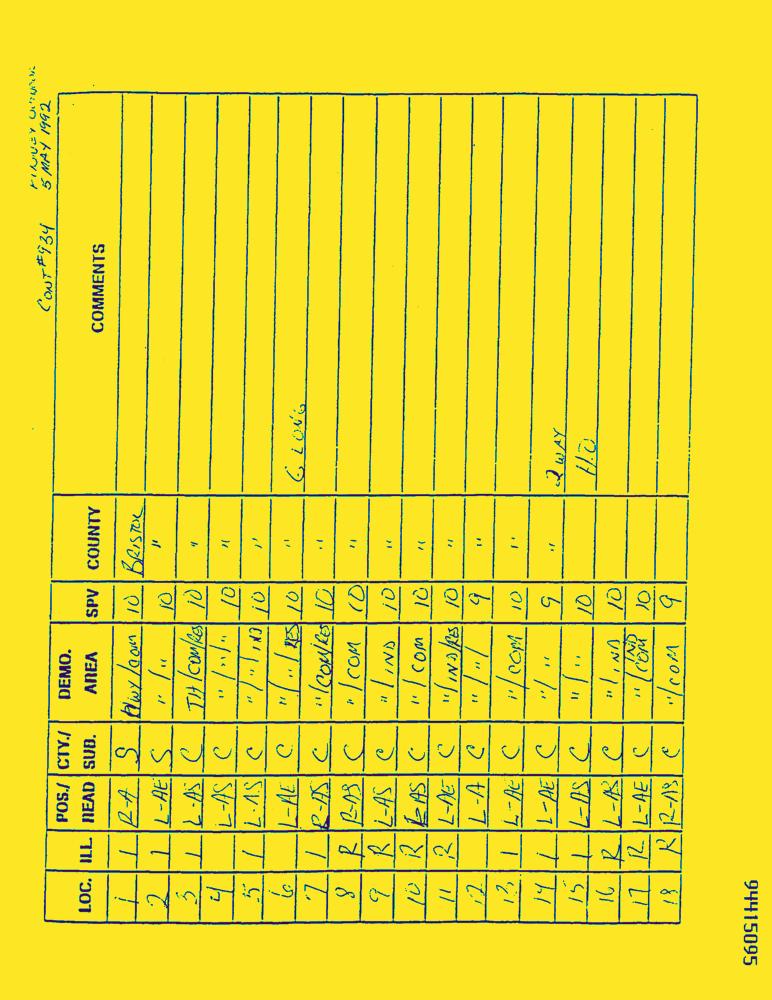 CONT # 934
5 MAY 1992
LOC. ILL. POS./ HEAD CTY./ SUB. DEMO. AREA SPV COUNTY COMMENTS
1 I R-A S HWY/COM 10 BRISTOL
2 I L-AE S "/" 10 "
3 I L-AS C TH/COM/RES 10 "
4 L-AS C "/"/" 10 "
5 I L-AS C "/"/IND 10 "
6 L-AE C "/"/RES 10 " G LONG
7 I R-AS C "/COM/RES 10 "
8 R R-AS C "/COM 10 "
9 R L-AS C "/IND 10 "
10 R R-AS C "/COM 10 "
11 R L-AE C "/IND/RES 10 "
12 L-A C "/"/ 9 "
13 I L-AE C "/COM 10 "
14 I L-AE C "/" 9 " 2 WAY
15 I L-AS C "/" 10 H.O
16 R L-AS C "/IND 10
17 R L-AE C "/IND COM 10
18 R R-AS C "/COM 9
94415095